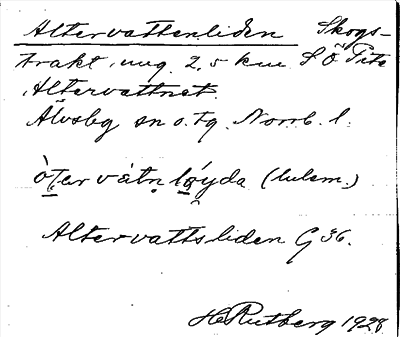 Altervattenliden Skogs-
trakt, ung. 2,5 km. S Ö Pite
Altervattnet.
Älvsby sn o. tg. Norrb. l.
òțer vátṇ lǫ́yda (lulem.)
Altervattsliden G 36.
H Rutberg 1928